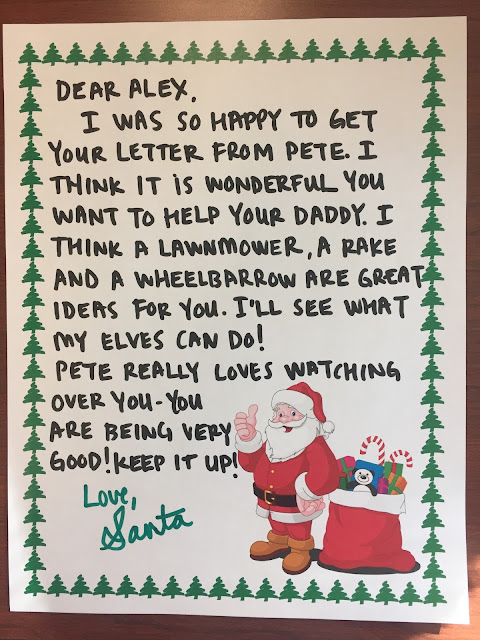 DEAR ALEX,
I WAS SO HAPPY TO GET
YOUR LETTER FROM PETE. I
THINK IT IS WONDERFUL YOU
WANT TO HELP YOUR DADDY. I
THINK A LAWNMOWER, A RAKE
AND A WHEELBARROW ARE GREAT
IDEAS FOR YOU. I'LL SEE WHAT
MY ELVES CAN DO!
PETE REALLY LOVES WATCHING
OVER YOU-YOU
ARE BEING VERY
GOOD! KEEP IT UP!
Love,
Santa